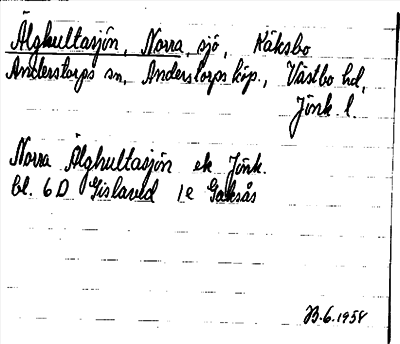 Älghultasjön, Norra, sjö, Käksbo
Anderstorps sn, Anderstorps köp., Västbo hd,
Jönk. l.
Norra Älghultasjön ek Jönk.
bl. 6D Gislaved 1e Gaksås
6.1958